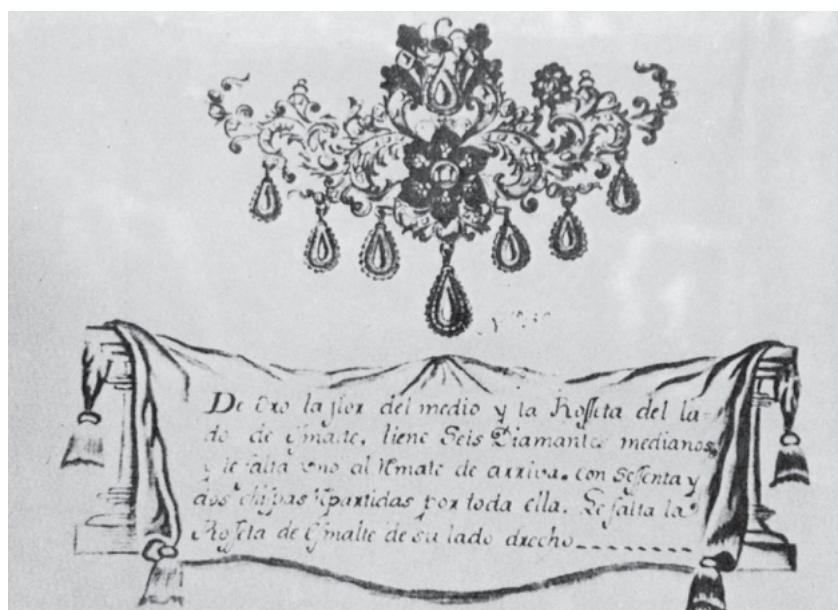 De Oro la flor del medio y la Rosseta del la-
do de Esmalte, tiene Seis Diamantes medianos,
y le falta uno al Remate de arriva. con Sessenta y
dos chispas Repartidas por toda ella. Le falta la
Rosseta de Esmalte de su lado drecho